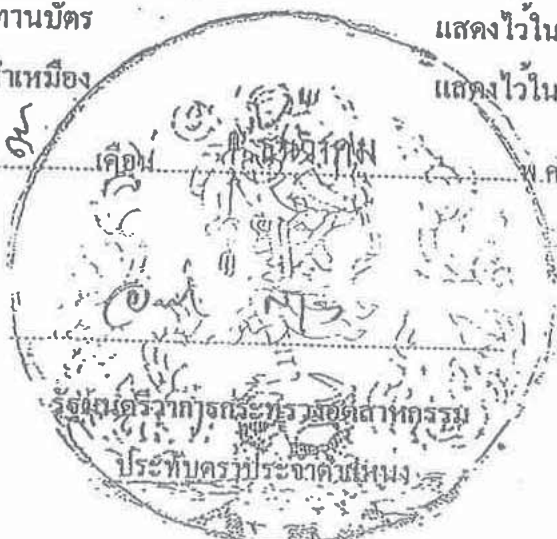 ทานบัตร แสดงไว้ใน
ำเหมือง แสดงไว้ใน
เดือน ธันวาคม พ.ศ
รัฐมนตรีว่าการกระทรวงอุตสาหกรรม
ประทับตราประจำตำแหน่ง